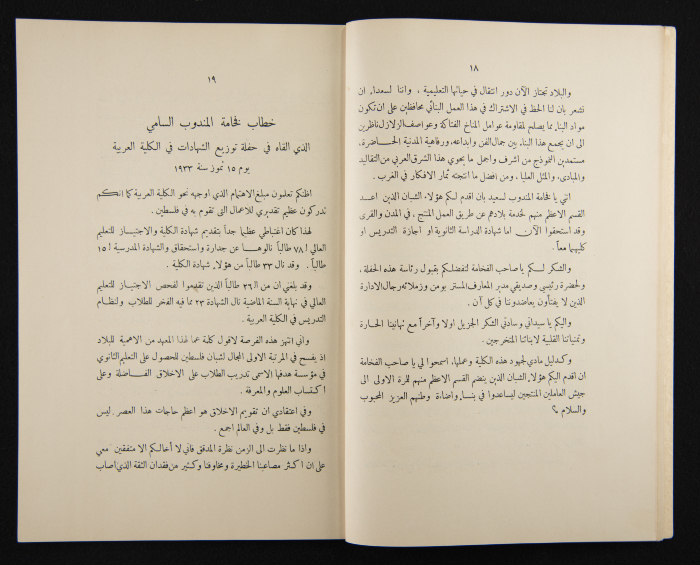 ١٨
والبلاد تجتاز الآن دور انتقال في حياتها التعليمية ، واننا لسعداء ان
نشعر بان لنا الحظ في الاشتراك في هذا العمل البنائي محافظين على ان تكون
مواد البناء مما يصلح لمقاومة عوامل المناخ الفتاكة وعواصف الزلازل ناظرين
الى ان يجمع هذا البناء بين جمال الفن وابداعه، ورفاهية المدنية الحاضرة،
مستمدين النموذج من اشرف واجمل ما يحوي هذا الشرق العربي من التقاليد
والمبادئ، والمثل العليا ، ومن افضل ما انتجته ثمار الافكار في الغرب .
انني يا فخامة المندوب لسعيد بان اقدم لكم هؤلاء الشبان الذين اعد
القسم الاعظم منهم لخدمة بلادهم عن طريق العمل المنتج ، في المدن والقرى
وقد استحقوا الآن اما شهادة الدراسة الثانوية او اجازة التدريس او
كليهما معاً .
والشكر لكم يا صاحب الفخامة لتفضلكم بقبول رئاسة هذه الحفلة ،
ولحضرة رئيسي وصديقي مدير المعارف المستر بومن وزملائه رجال الادارة
الذين لا يفتأون يعاضدوننا في كل آن .
واليكم يا سيداتي وسادتي الشكر الجزيل اولا وآخراً مع تهانينا الحارة
وتمنياتنا القلبية لابنائنا المتخرجين .
وكدليل مادي لجهود هذه الكلية وعملها، اسمحوا لي يا صاحب الفخامة
ان اقدم اليكم هؤلاء الشبان الذين ينضم القسم الاعظم منهم للمرة الاولى الى
جيش العاملين المنتجين ليساعدوا في بناء واضاءة وطنهم العزيز المحبوب
والسلام
١٩
خطاب فخامة المندوب السامي
الذي القاه في حفلة توزيع الشهادات في الكلية العربية
يوم ١٥ تموز سنة ١٩٣٣
اظنكم تعلمون مبلغ الاهتمام الذي اوجهه نحو الكلية العربية كما انكم
تدركون عظيم تقديري للاعمال التي تقوم به في فلسطين .
لهذا كان اغتباطي عظيما جداً بتقديم شهادة الكلية والاجتياز للتعليم
العالي ل ٧٨ طالباً نالوها عن جدارة واستحقاق والشهادة المدرسية ل ١٥
طالباً . وقد نال ٣٣ طالباً من هؤلاء شهادة الكلية .
وقد بلغني ان من ال ٢٦ طالباً الذين تقدموا لفحص الاجتياز للتعليم
العالي في نهاية السنة الماضية نال الشهادة ٢٣ مما فيه الفخر للطلاب ولنظام
التدريس في الكلية العربية .
واني انتهز هذه الفرصة لاقول كلمة عما لهذا المعهد من الاهمية للبلاد
اذ يفسح في المرتبة الاولى المجال لشبان فلسطين للحصول على التعليم الثانوي
في مؤسسة هدفها الاسمى تدريب الطلاب على الاخلاق الفاضلة وعلى
اكتساب العلوم والمعرفة .
وفي اعتقادي ان تقويم الاخلاق هو اعظم حاجات هذا العصر ليس
في فلسطين فقط بل وفي العالم اجمع .
واذا ما نظرت الى الزمن نظرة المدقق فاني لا أخالكم الا متفقين معي
على ان اكثر مصاعبنا الخطيرة ومخاوفنا وكثير من فقدان الثقة الذي اصاب